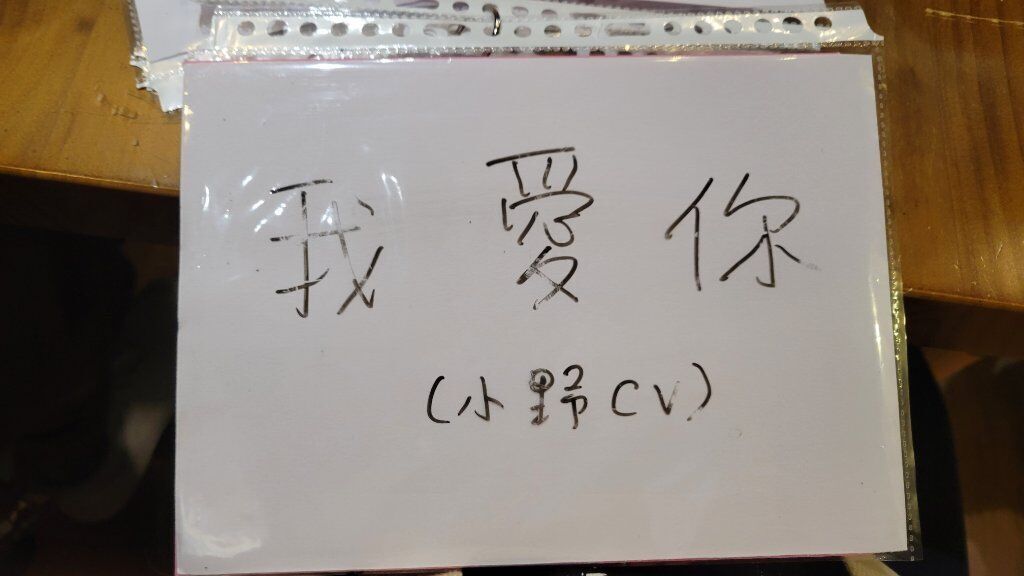 我愛你
(小野CV)